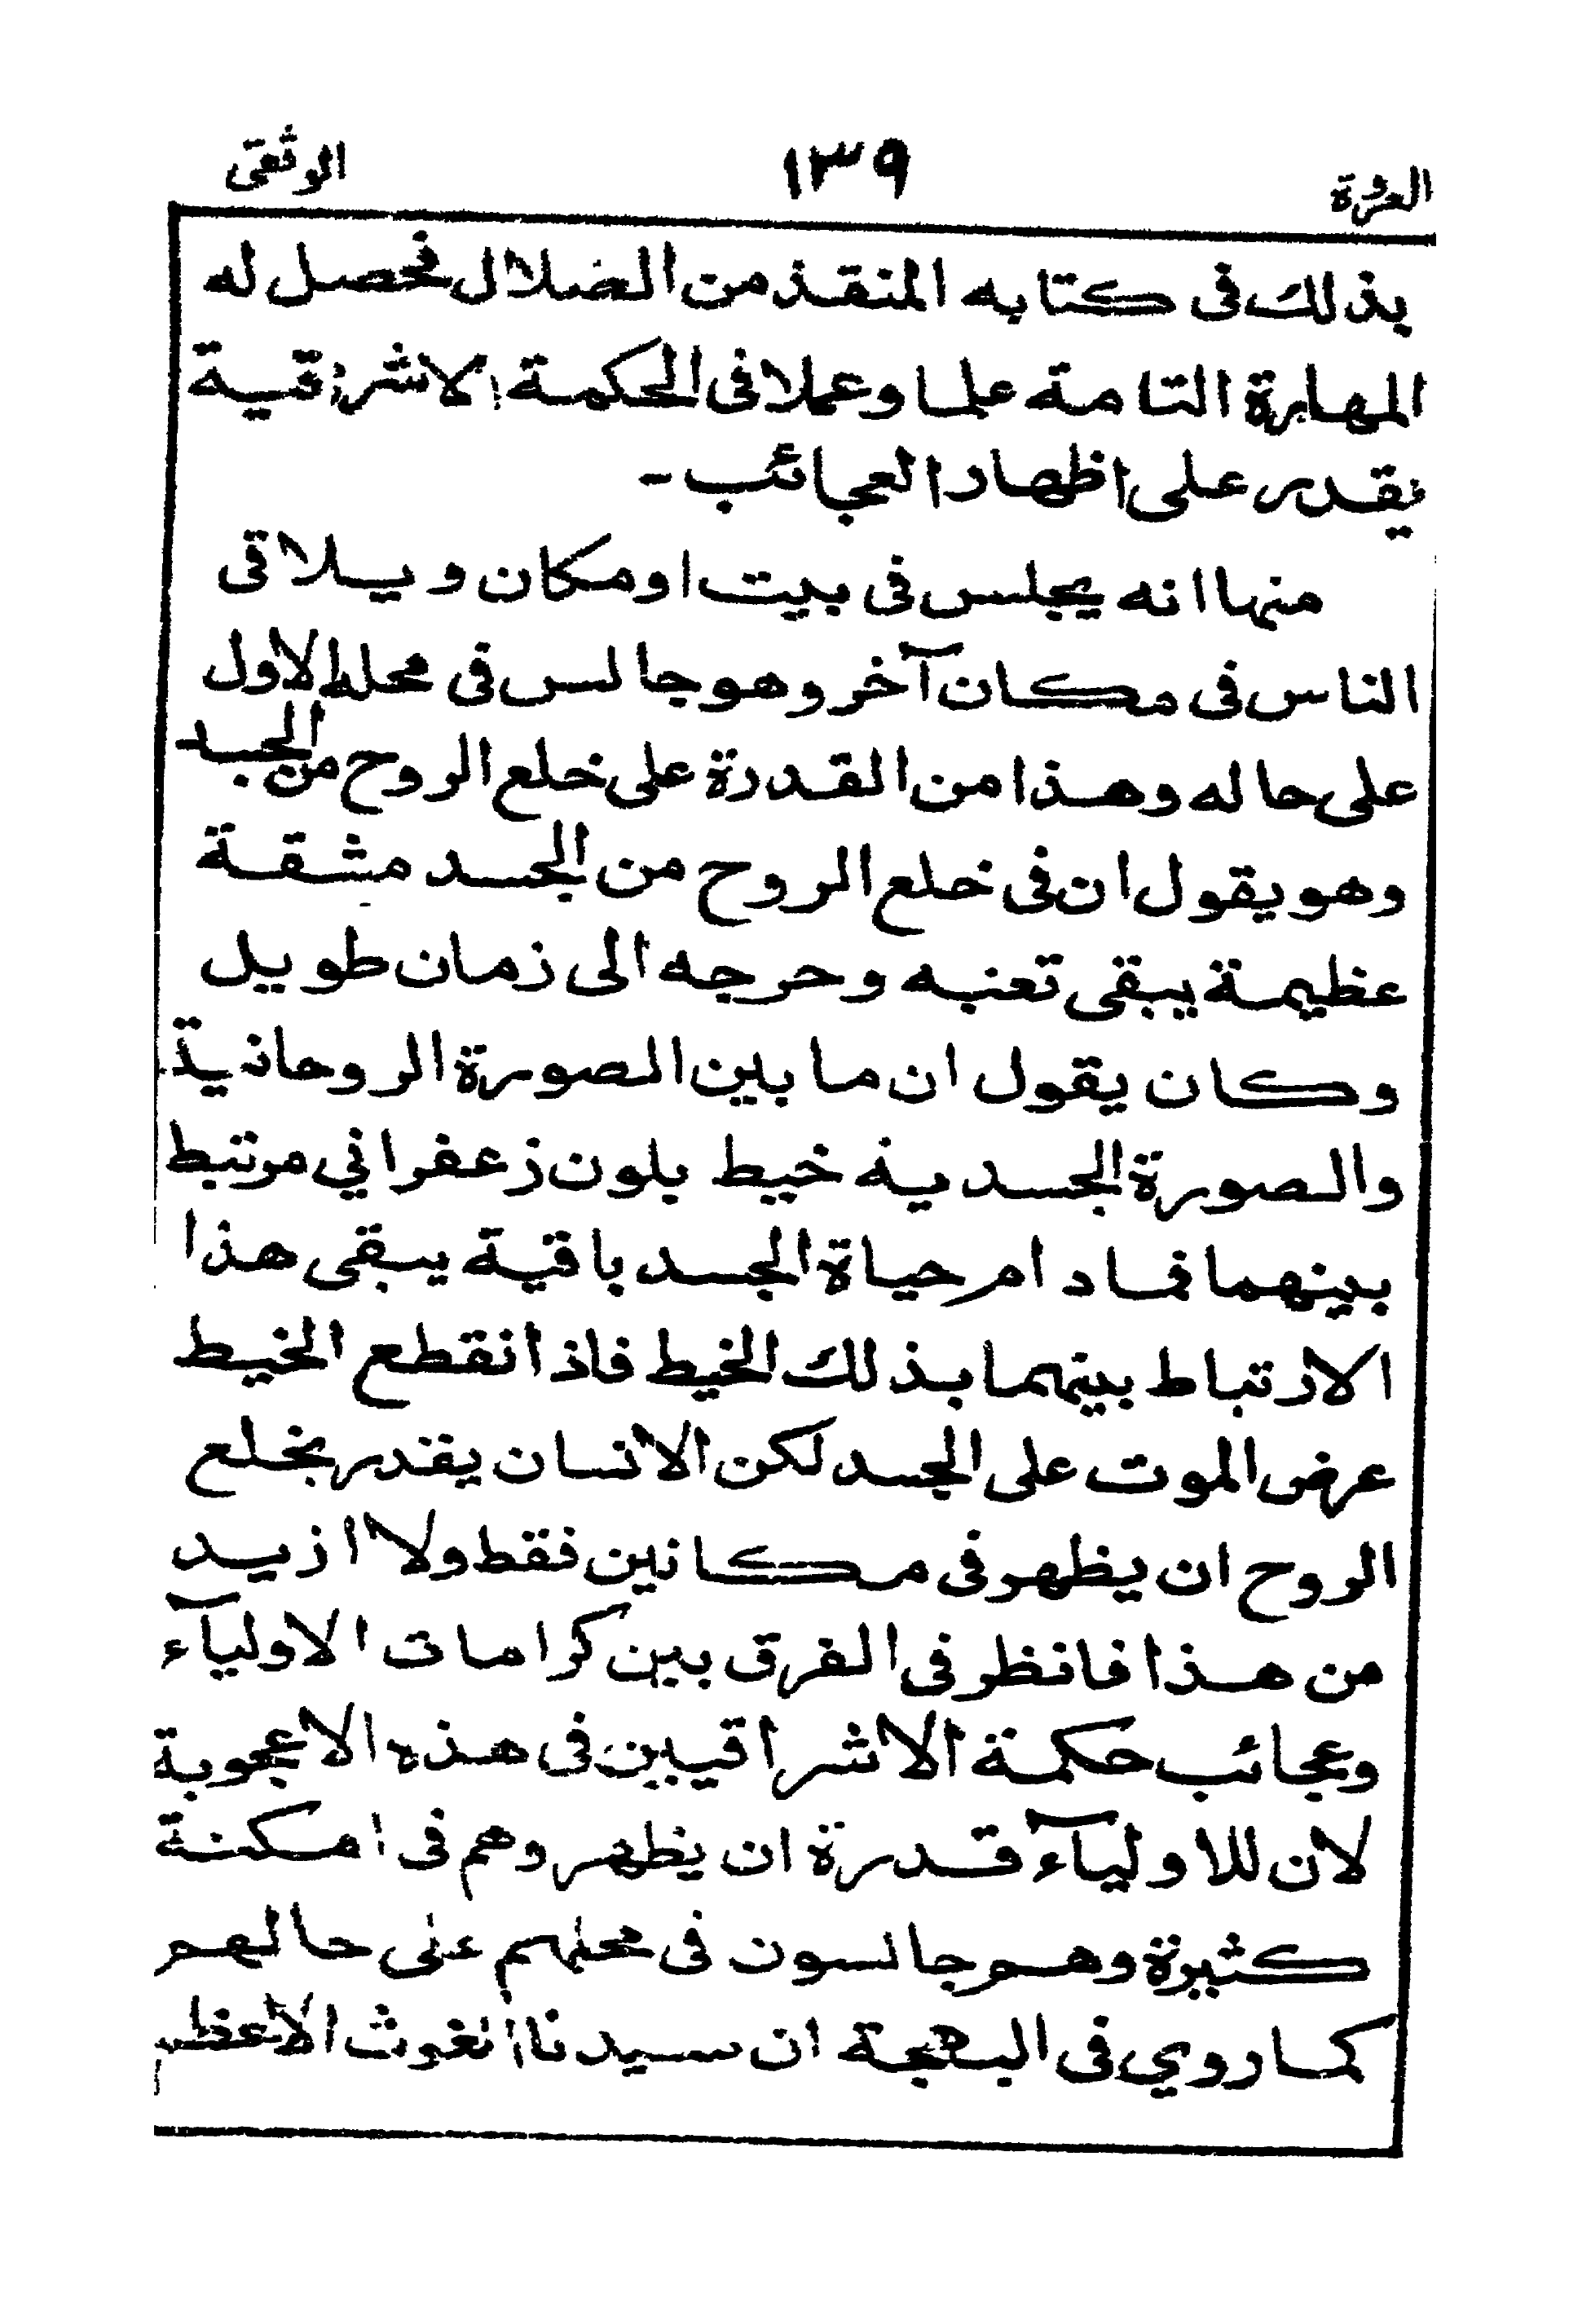 العروة ١٣٩ الوثقى
بذلك فى كتابه المنقذ من الضلال فحصل له
المهارة التامة علما وعملا فى الحكمة الاشراقية
يقدر على اظهار العجائب -
منها انه يجلس فى بيت او مكان و يلاقى
الناس فى مكان آخر وهو جالس فى محله الاول
على حاله وهذا من القدرة على خلع الروح من الجسد
وهو يقول ان فى خلع الروح من الجسد مشقة
عظيمة يبقى تعنبه وحرجه الى زمان طويل
وكان يقول ان ما بين الصورة الروحانية
والصورة الجسدية خيط بلون زعفراني مرتبط
بينهما فماد ام حياة الجسد باقية يبقى هذا
الارتباط بينهما بذلك الخيط فاذا انقطع الخيط
عرض الموت على الجسد لكن الانسان يقدر بخلع
الروح ان يظهر فى مكانين فقط ولا ازيد
من هذا فانظر فى الفرق بين كرامات الاولياء
وعجائب حكمة الاشراقيين فى هذه الاعجوبة
لان للاولياء قدرة ان يظهر وهم فى امكنة
كثيرة وهم جالسون فى محلهم على حالهم
كما روي فى البهجة ان سيدنا الغوث الاعظم